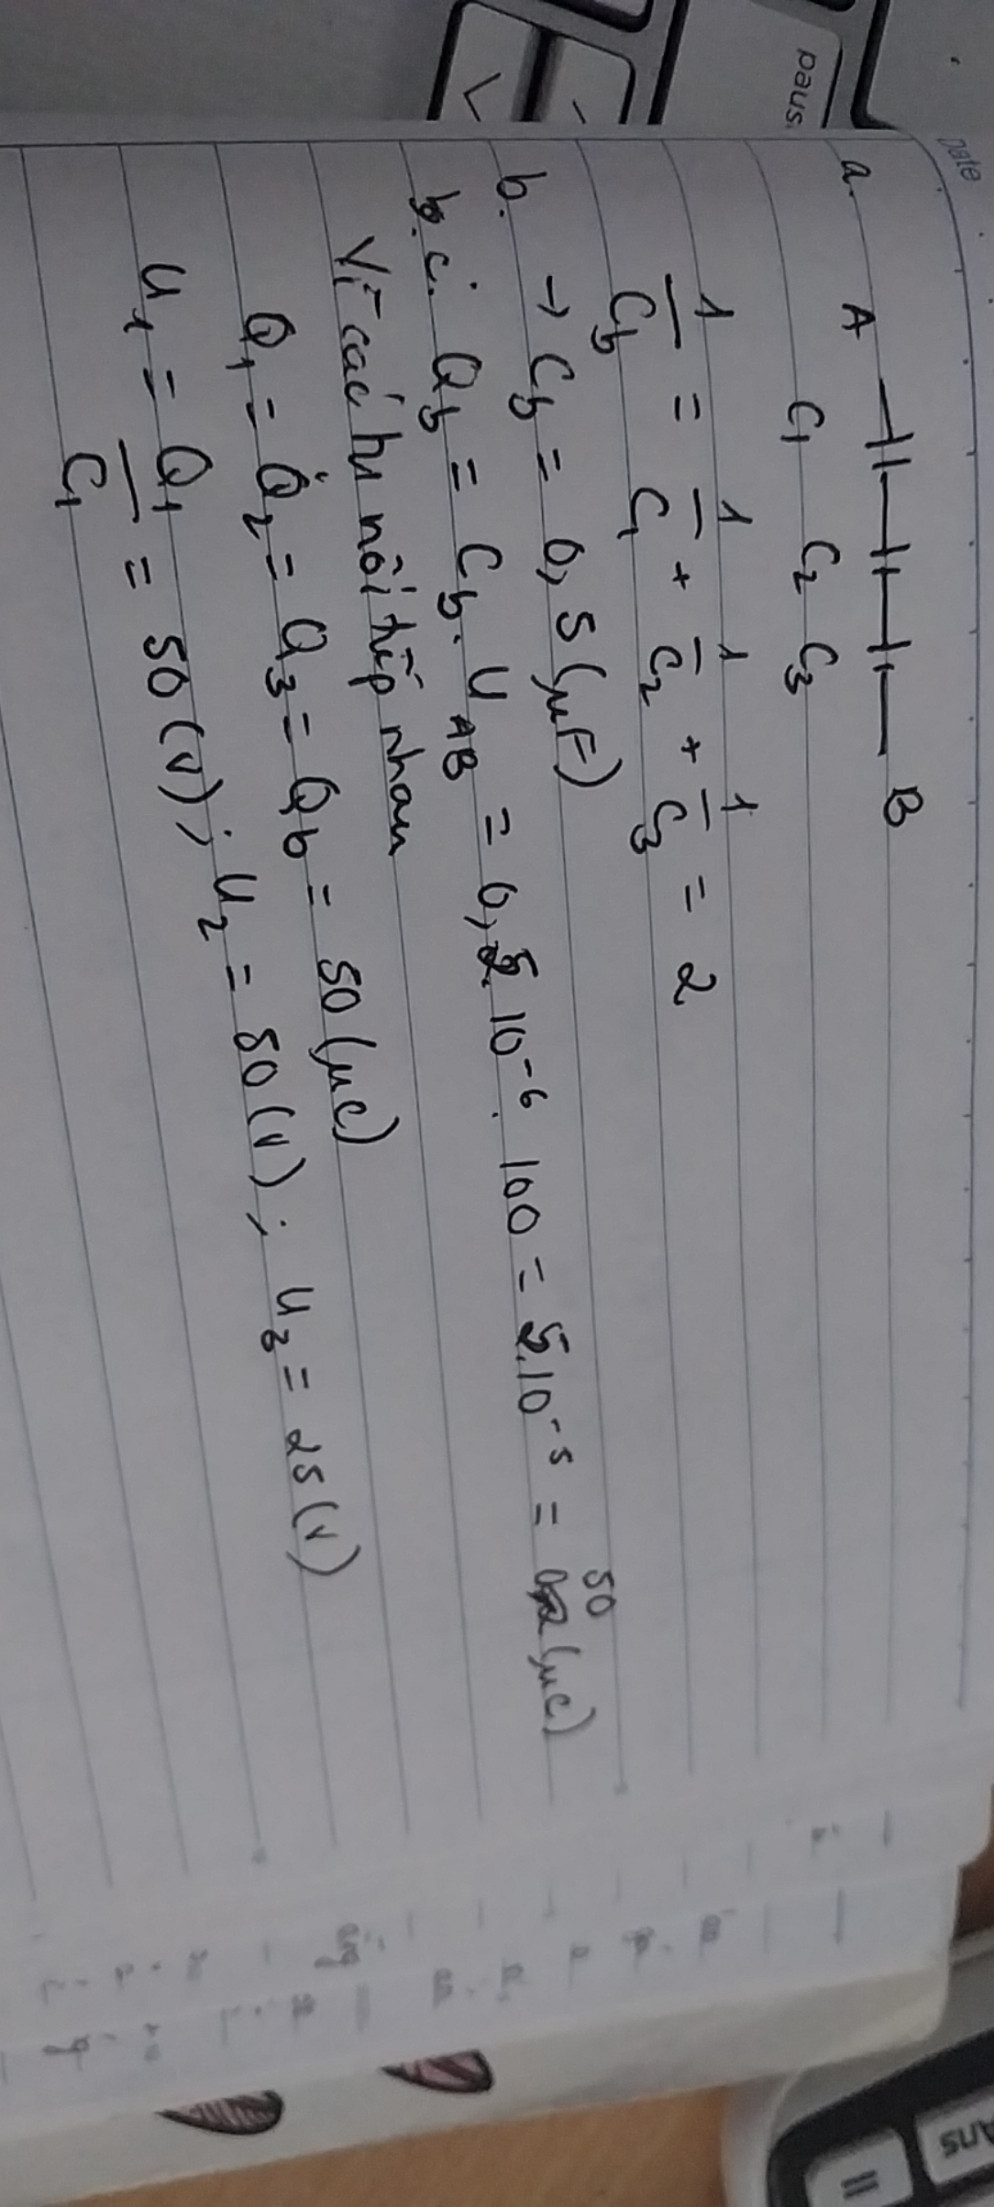 Date
paus
a.
A B
C₁ C₂ C₃
1/C_b = 1/C₁ + 1/C₂ + 1/C₃ = 2
b. → C_b = 0,5 (μF)
c. Q_b = C_b . U_AB = 0,5. 10⁻⁶ . 100 = 5.10⁻⁵ = 50 (μC)
Vì các tụ nối tiếp nhau
Q₁ = Q₂ = Q₃ = Q_b = 50 (μC)
U₁ = Q₁/C₁ = 50 (V); U₂ = 50 (V); U₃ = 25 (V)
Ans
=